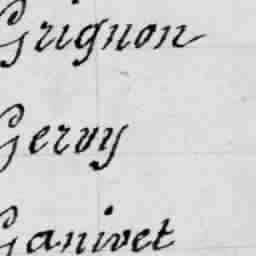 Grignon
Gervy
Ganivet